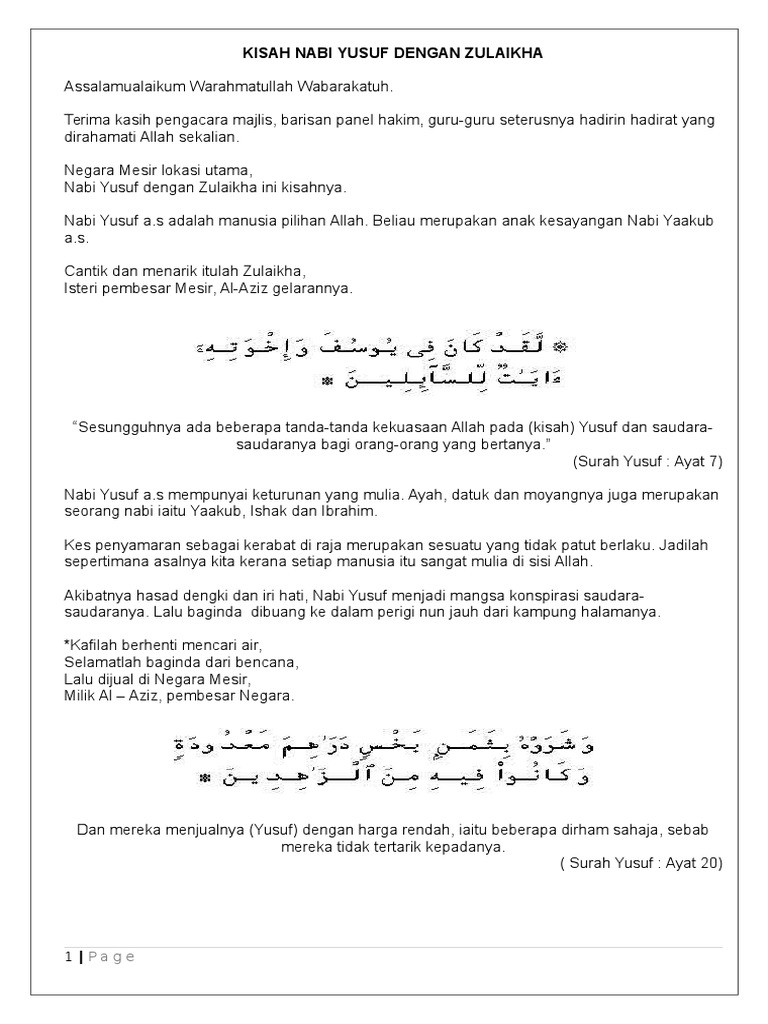 KISAH NABI YUSUF DENGAN ZULAIKHA
Assalamualaikum Warahmatullah Wabarakatuh.
Terima kasih pengacara majlis, barisan panel hakim, guru-guru seterusnya hadirin hadirat yang
dirahamati Allah sekalian.
Negara Mesir lokasi utama,
Nabi Yusuf dengan Zulaikha ini kisahnya.
Nabi Yusuf a.s adalah manusia pilihan Allah. Beliau merupakan anak kesayangan Nabi Yaakub
a.s.
Cantik dan menarik itulah Zulaikha,
Isteri pembesar Mesir, Al-Aziz gelarannya.
۞ لَّقَدْ كَانَ فِى يُوسُفَ وَإِخْوَتِهِۦٓ
ءَايَـٰتٌ لِّلسَّآئِلِينَ ۞
“Sesungguhnya ada beberapa tanda-tanda kekuasaan Allah pada (kisah) Yusuf dan saudara-
saudaranya bagi orang-orang yang bertanya.”
(Surah Yusuf : Ayat 7)
Nabi Yusuf a.s mempunyai keturunan yang mulia. Ayah, datuk dan moyangnya juga merupakan
seorang nabi iaitu Yaakub, Ishak dan Ibrahim.
Kes penyamaran sebagai kerabat di raja merupakan sesuatu yang tidak patut berlaku. Jadilah
sepertimana asalnya kita kerana setiap manusia itu sangat mulia di sisi Allah.
Akibatnya hasad dengki dan iri hati, Nabi Yusuf menjadi mangsa konspirasi saudara-
saudaranya. Lalu baginda  dibuang ke dalam perigi nun jauh dari kampung halamanya.
*Kafilah berhenti mencari air,
Selamatlah baginda dari bencana,
Lalu dijual di Negara Mesir,
Milik Al – Aziz, pembesar Negara.
وَشَرَوْهُ بِثَمَنٍۭ بَخْسٍ دَرَٰهِمَ مَعْدُودَةٍ
وَكَانُوا۟ فِيهِ مِنَ ٱلزَّٰهِدِينَ ۞
Dan mereka menjualnya (Yusuf) dengan harga rendah, iaitu beberapa dirham sahaja, sebab
mereka tidak tertarik kepadanya.
( Surah Yusuf : Ayat 20)
1 | Page